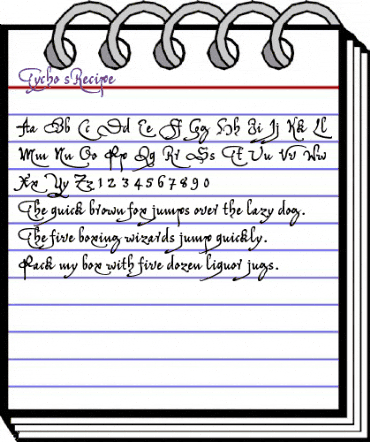 Tycho's Recipe
Aa Bb Cc Dd Ee Ff Gg Hh Ii Jj Kk Ll
Mm Nn Oo Pp Qq Rr Ss Tt Uu Vv Ww
Xx Yy Zz 1 2 3 4 5 6 7 8 9 0
The quick brown fox jumps over the lazy dog.
The five boxing wizards jump quickly.
Pack my box with five dozen liquor jugs.